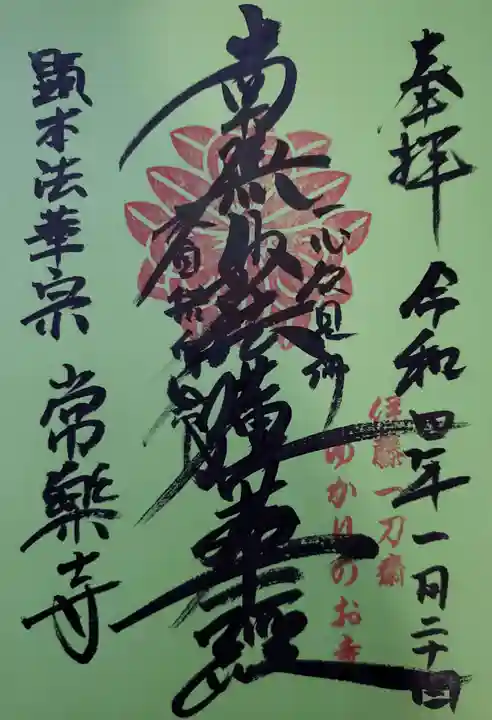 奉拝 令和四年一月二十日
伊藤一刀齋
ゆかりのお寺
一心欲見佛
南無妙法蓮華經
不自惜身命
顕本法華宗 常樂寺